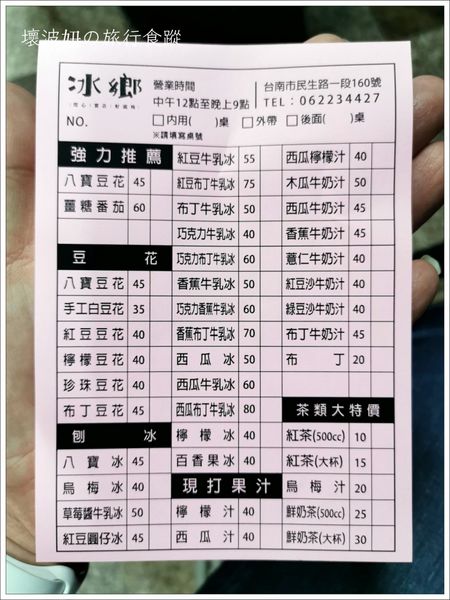 壞波妞の旅行食蹤
冰鄉
營業時間
中午12點至晚上9點
台南市民生路一段160號
TEL：062234427
NO. □內用( )桌 □外帶 □後面( )桌
※請填寫桌號
強力推薦
八寶豆花 45
薑糖番茄 60
豆花
八寶豆花 45
手工白豆花 35
紅豆豆花 40
檸檬豆花 40
珍珠豆花 40
布丁豆花 45
刨冰
八寶冰 45
烏梅冰 40
草莓醬牛乳冰 50
紅豆圓仔冰 45
紅豆牛乳冰 55
紅豆布丁牛乳冰 75
布丁牛乳冰 50
巧克力牛乳冰 40
巧克力布丁牛乳冰 60
香蕉牛乳冰 50
巧克力香蕉牛乳冰 60
香蕉布丁牛乳冰 70
西瓜冰 50
西瓜牛乳冰 60
西瓜布丁牛乳冰 80
檸檬冰 40
百香果冰 40
現打果汁
檸檬汁 40
西瓜汁 40
西瓜檸檬汁 40
木瓜牛奶汁 50
西瓜牛奶汁 45
香蕉牛奶汁 45
薏仁牛奶汁 40
紅豆沙牛奶汁 40
綠豆沙牛奶汁 40
布丁牛奶汁 45
布丁 20
茶類大特價
紅茶(500cc) 10
紅茶(大杯) 15
烏梅汁 20
鮮奶茶(500cc) 25
鮮奶茶(大杯) 30